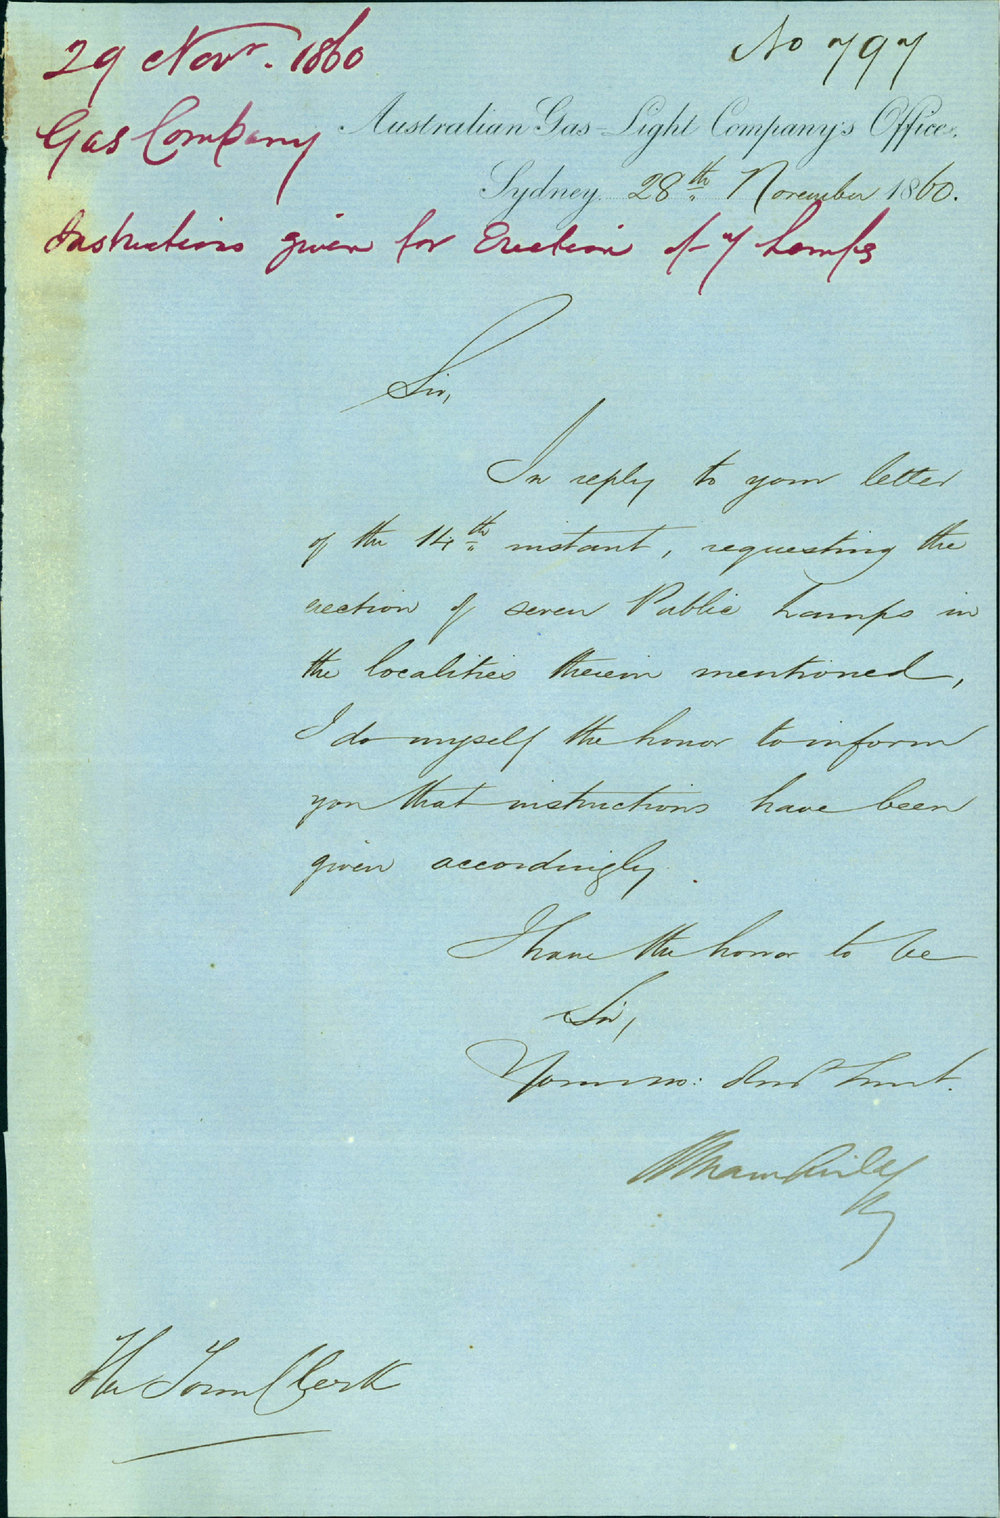 29 Novr. 1860
No 797
Gas Company
Australian Gas-Light Company's Office,
Sydney 28th November 1860.
Instructions given for Erection of 7 Lamps
Sir,
In reply to your letter
of the 14th instant, requesting the
erection of seven Public Lamps in
the localities therein mentioned,
I do myself the honor to inform
you that instructions have been
given accordingly.
I have the honor to be
Sir,
Your mo: Obt Servt.
The Town Clerk